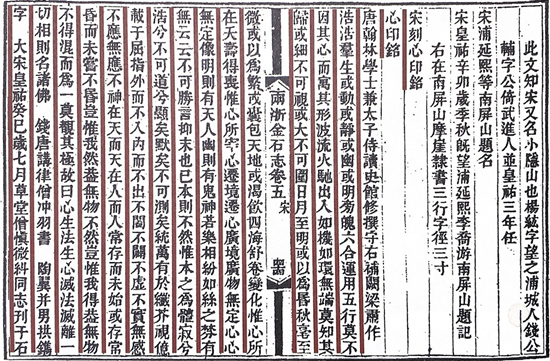 此文知宋又名小隱山也楊紘字望之浦城人錢公
輔字公倚武進人並皇祐三年任
宋浦延熙等南屏山題名
宋皇祐辛卯歲季秋既望浦延熙李喬游南屏山題記
右在南屏山摩崖隸書三行字徑三寸
宋刻心印銘
心印銘
唐翰林學士兼太子侍讀史館修撰守右補闕梁肅作
浩浩羣生或動或靜或幽或明旁魄六合運用五行莫不
因其心而寓其形波流火馳出入如機如環無端莫知其
歸或細不可視或大不可圍日月至明或以爲昏秋毫至
兩浙金石志卷五 宋
微或以爲繁或囊包天地或渴飲四海舒卷變化惟心所
在夭壽得喪惟心所宰心遷境遷心廣境廣物無定心心
無定像明則有天人幽則有鬼神苦樂相紛如絲之棼有
無云云不可勝言抑末也已本則不然惟本之爲體寂兮
浩兮不可道兮顯矣默矣不可測矣統萬有於纖芥視億
載于屈指外而不入内而不出不闔不闢不虛不實無感
不應無應不神在天而天在人而人常存而未始或存常
昏而未嘗不昏豈惟我然無物不然豈惟我得無物
不得混而爲一莫覩其極故曰心生法生心滅法滅離一
切相則名諸佛 錢唐講律僧冲羽書 陶翼并男拱鐫
字 大宋皇祐癸巳歲七月草堂僧慎微糾同志刊于石